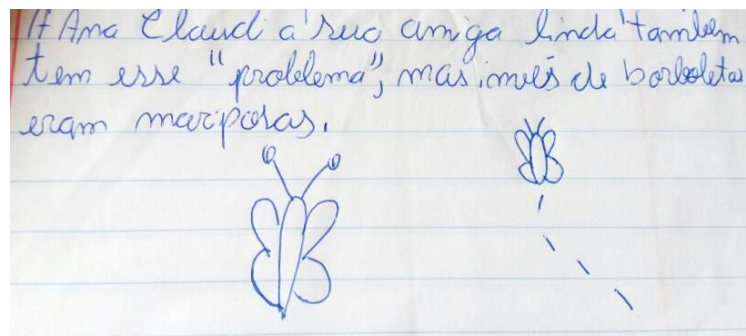 A Ana Claudi a sua amiga linda também
tem esse "problema", mas invés de borboletas
eram mariposas.